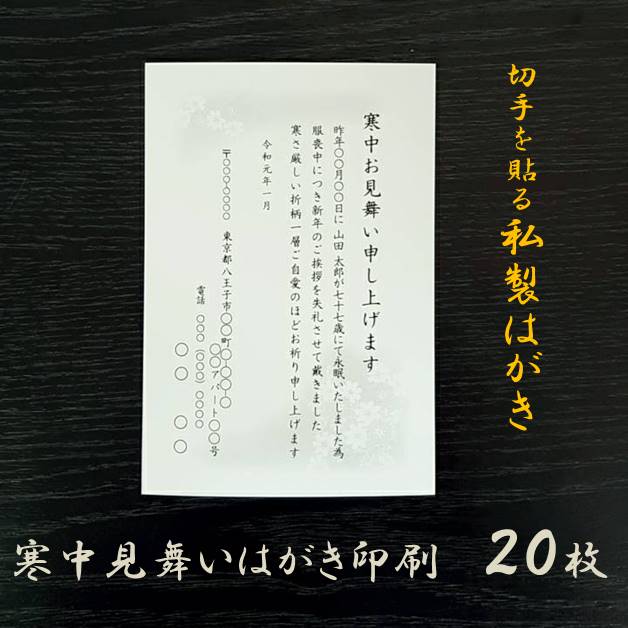 切手を貼る私製はがき
寒中お見舞い申し上げます
昨年〇〇月〇〇日に 山田 太郎が七十七歳にて永眠いたしました為
服喪中につき新年のご挨拶を失礼させて戴きました
寒さ厳しい折柄一層ご自愛のほどお祈り申し上げます
令和元年一月
〒〇〇〇-〇〇〇〇 東京都八王子市〇〇町〇-〇〇-〇
〇〇アパート〇〇号
電話 〇〇〇(〇〇〇)〇〇〇〇
〇〇 〇〇
寒中見舞いはがき印刷 20枚